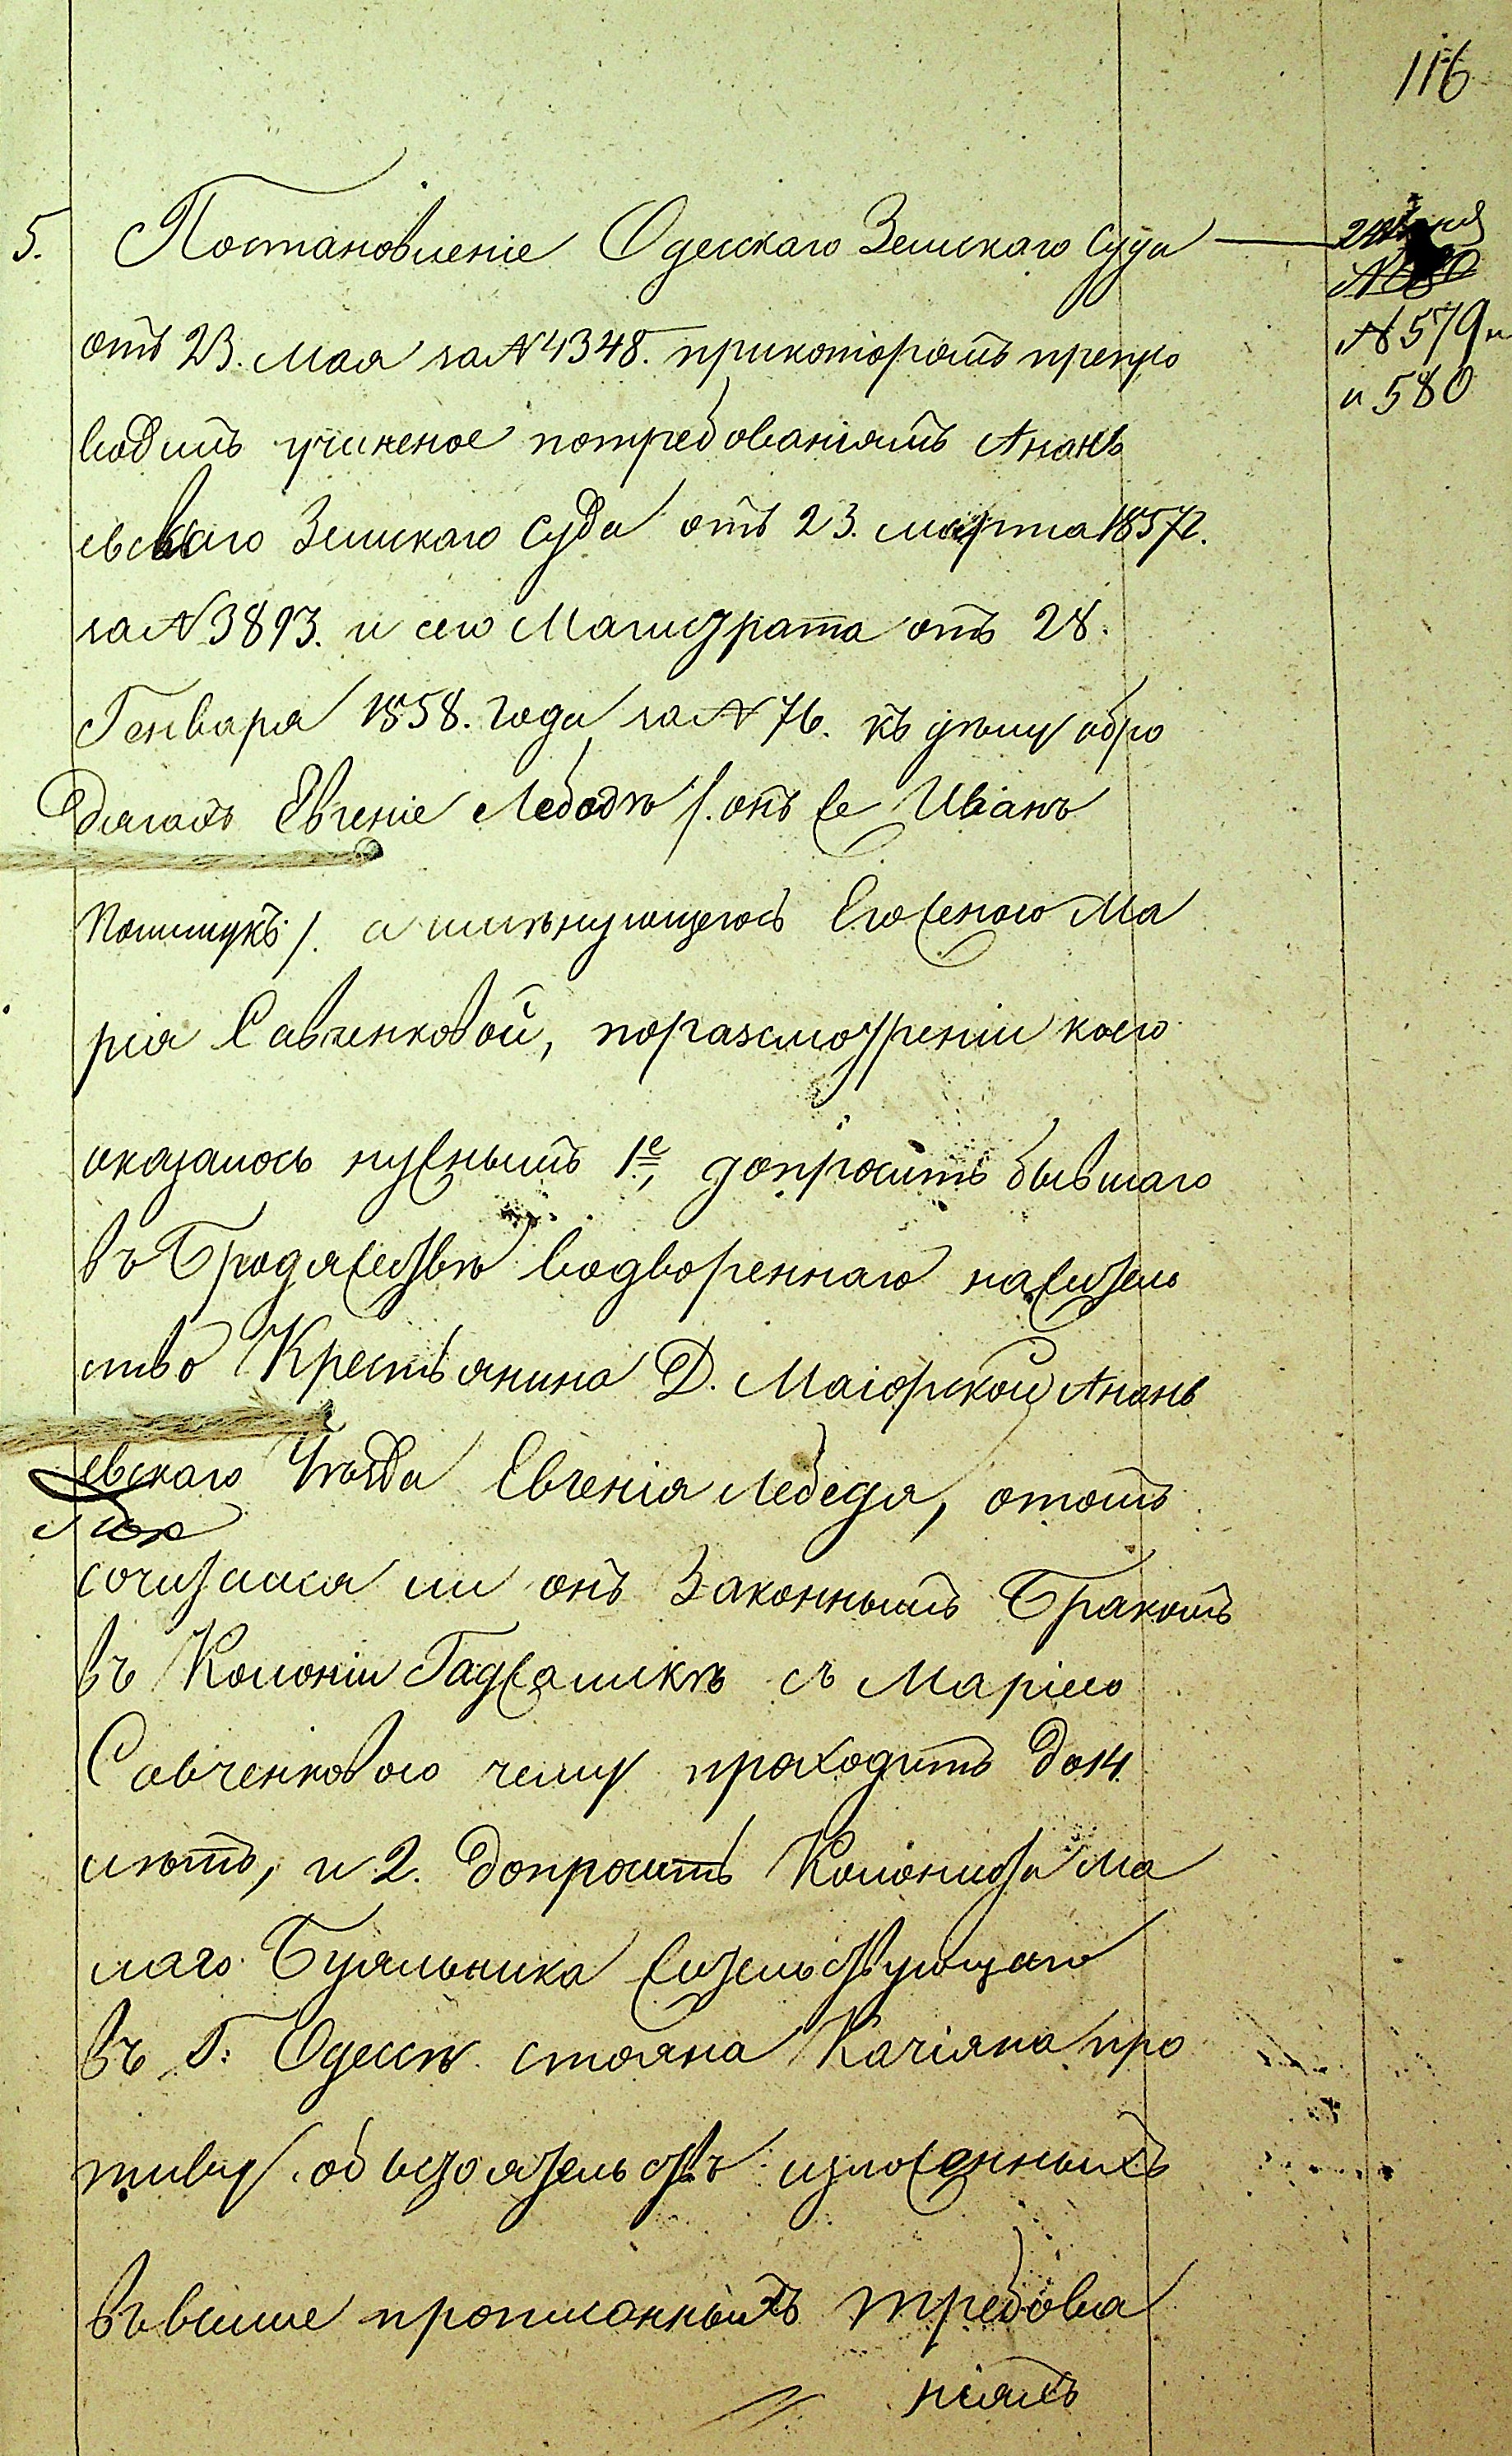 116
5. Постановленіе Одесскаго Земскаго Суда
отъ 23. Мая за № 4348. прикоторомъ препро
водитъ учиненое потребованіямъ Анань
евскаго Земскаго Суда отъ 23. марта 1857г.
за № 3893. и сего Магистрата отъ 28.
Генваря 1858. Года за № 76. къ дѣлу обро
дягахъ Евгеніе Лебедѣ /. онъ же Иванъ
/. а именующегось Его женою Ма
рія Савченковой, поразсмотреніи коего
оказалось нужнымъ 1е, допросить бывшаго
въ Бродяжествѣ водвореннаго нажитель
ство Крестьянина Д. Маіорской Анань
евскаго Уѣзда Евгенія Лебедя, отомъ
сочитался ли онъ Законнымъ Бракомъ
въ Колоніи Гаджамикѣ съ Маріею
Савченковою чему проходитъ до 14.
лѣтъ, и 2. допросить Колониста Ма
лаго Буяльника жительствующаго
въ Г: Одессѣ Стояна Качіяна про
тиву объстоятельствъ изложенныхъ
въвыше прописанныхъ требова
ніяхъ
№ 579
и 580